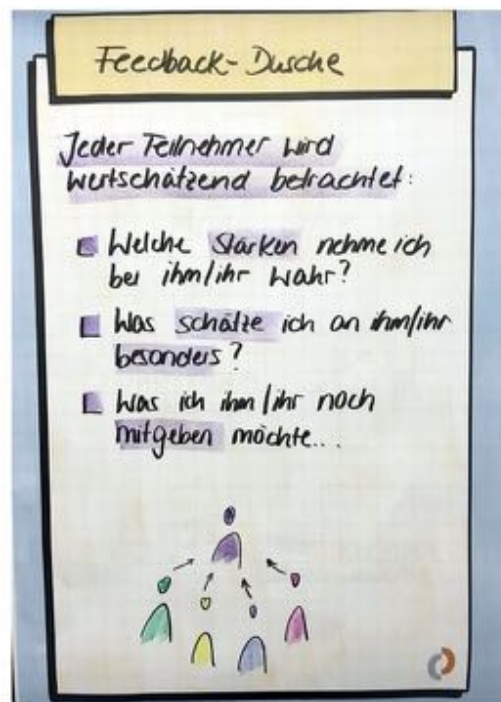 Feedback-Dusche
Jeder Teilnehmer wird
wertschätzend betrachtet:
Welche Stärken nehme ich
bei ihm/ihr wahr?
Was schätze ich an ihm/ihr
besonders?
Was ich ihm/ihr noch
mitgeben möchte...